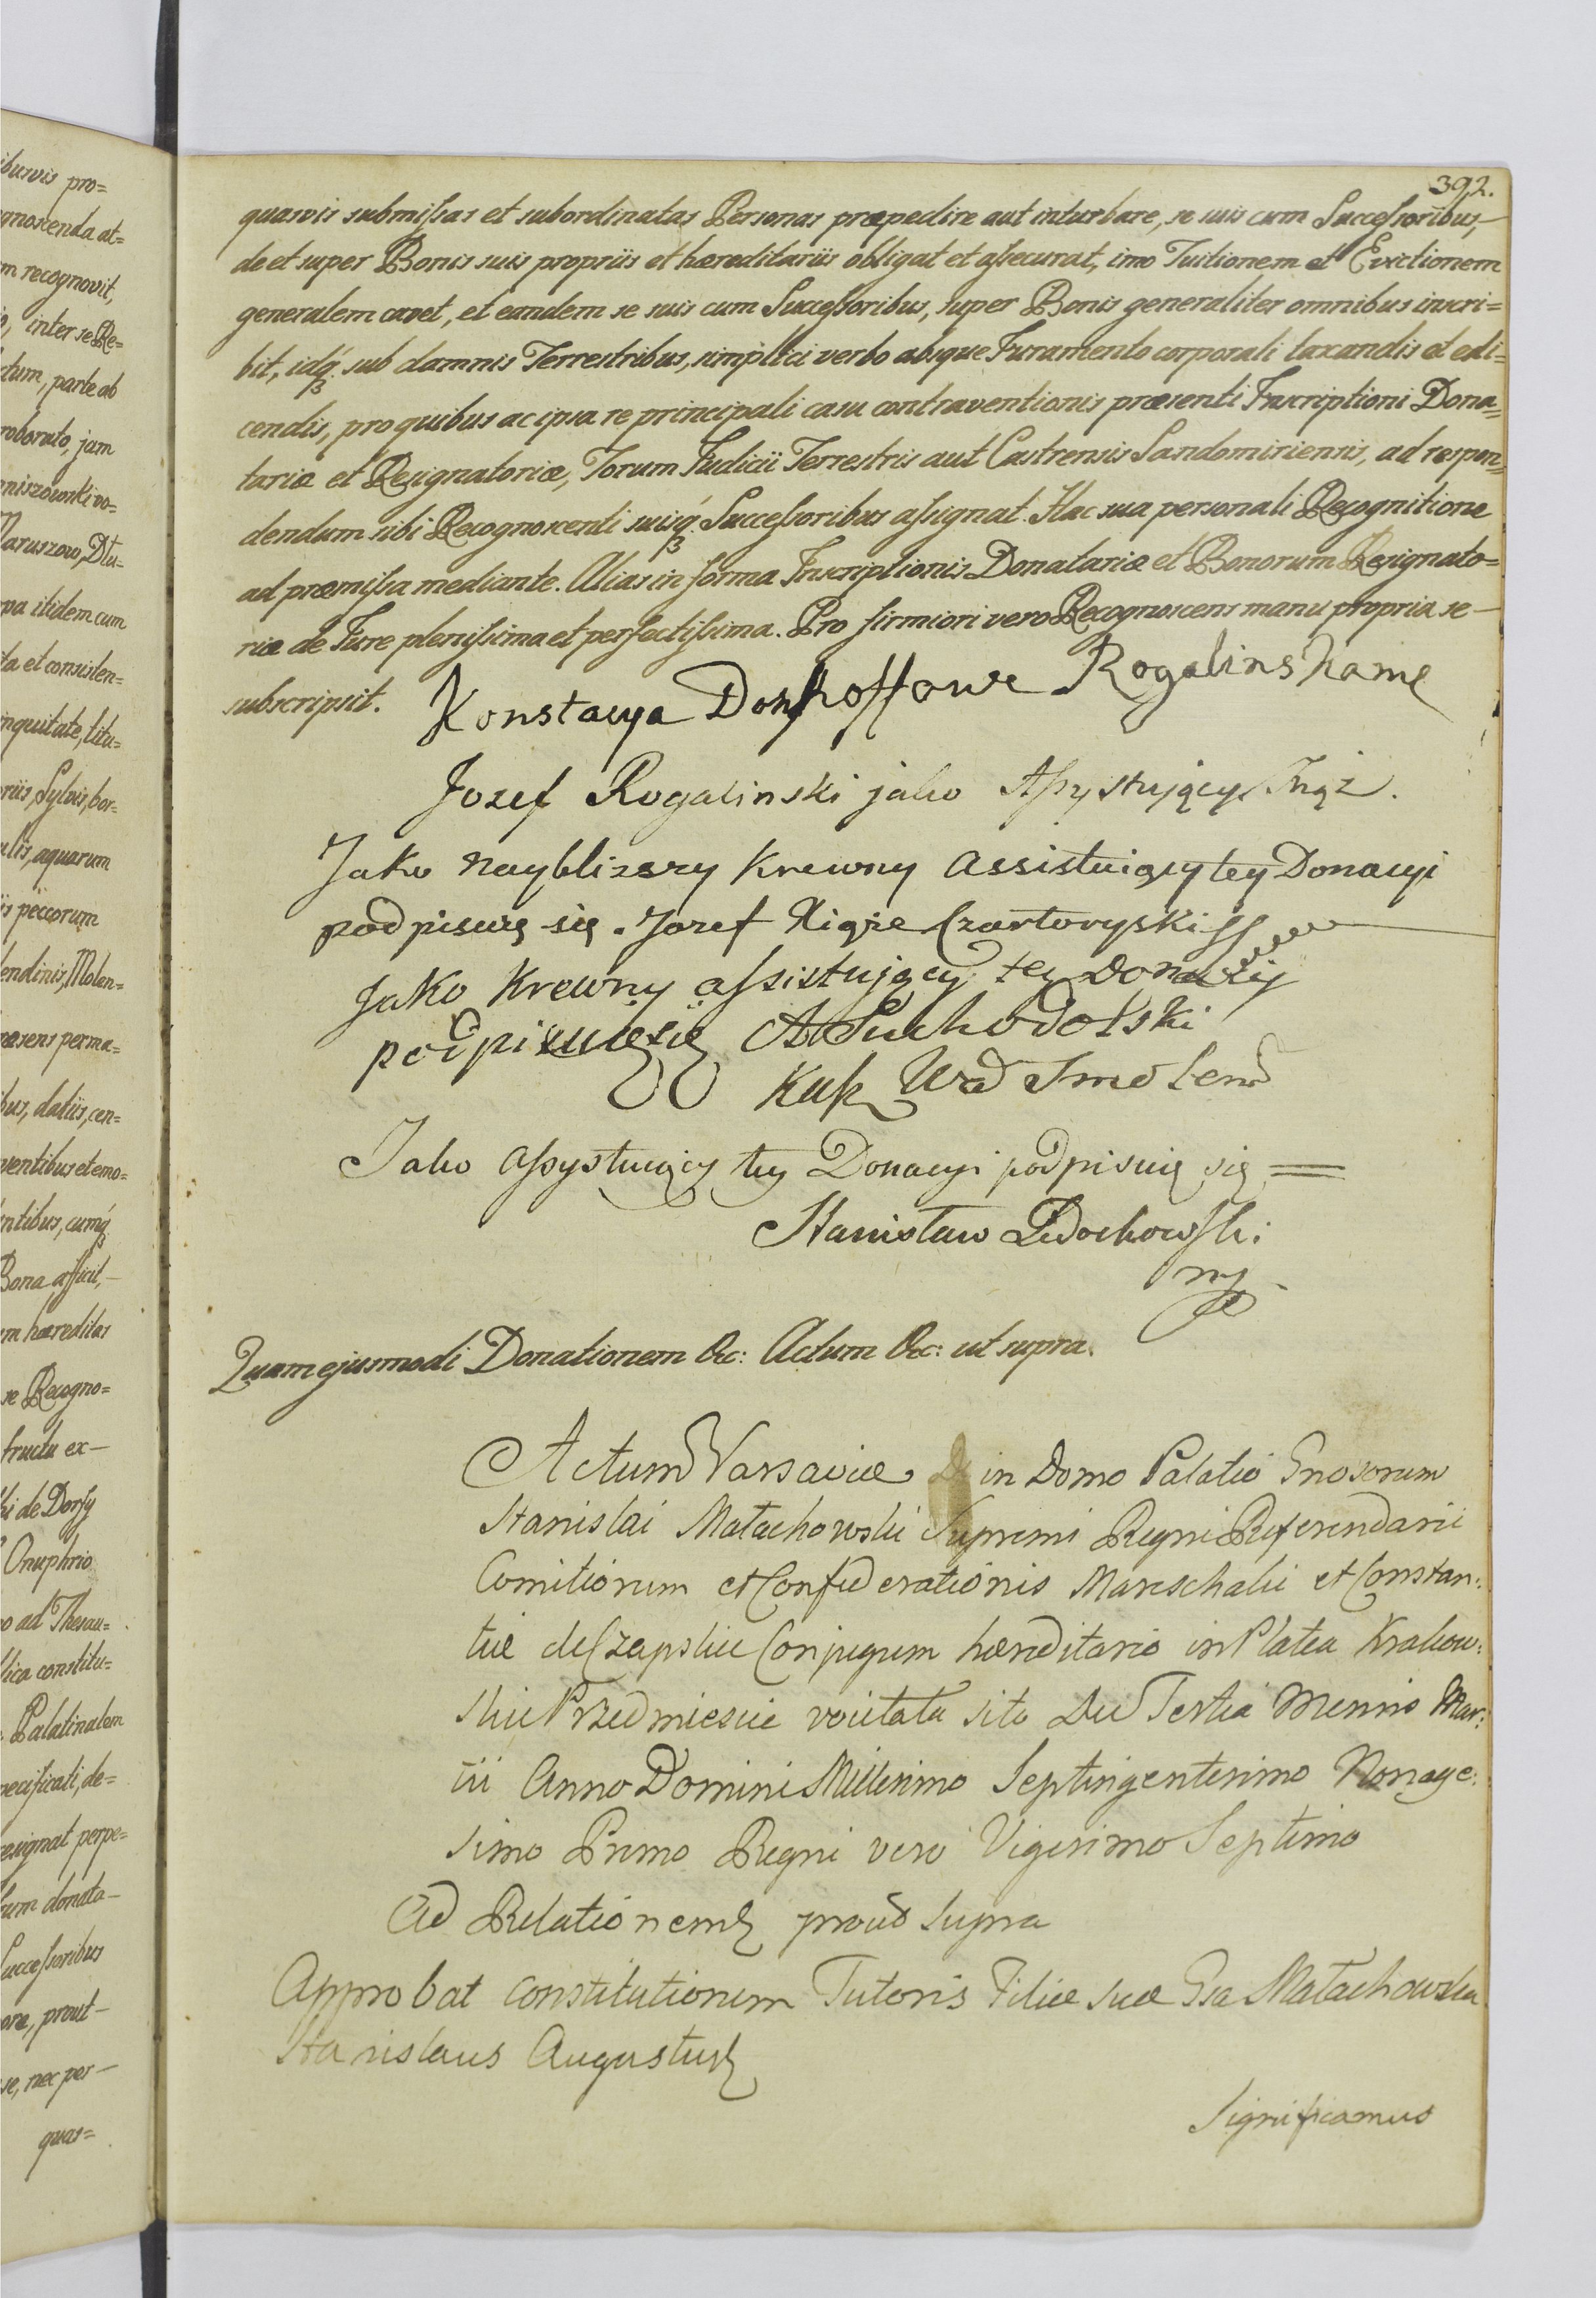 ibusvis pro=
gnoscenda at=
m recognovit,
inter se Re=
tum, parte ab
roborato, jam
niszowski vo=
Maruszow, Dłu=
pa itidem cum
ta et consisten=
nquitate, litu=
riis, Sylvis, bor=
lis, aquarum
is peccorum
endinis, Molen=
raesens perma=
bus, datiis, cen=
ventibus et emo=
ntibus, cumq́
Bona afficit,—
m haereditas
se Recogno=
fructu ex—
ki de Dorsy
Onuphrio
o ad Thesau=
lica constitu=
Palatinatem
pecificati, de=
resignat perpe=
um donata—
Successoribus
ore, prout—
se, nec per—
quas=
392.
quasvis submissas et subordinatas Personas præpedire aut inturbare, se suis cum Successoribus,—
de et super Bonis suis propriis et hæreditariis obligat et assecurat, imo Tuitionem et Evictionem
generalem cavet, et eandem se suis cum Successoribus, super Bonis generaliter omnibus inscri=
bit, idq́ sub damnis Terrestribus, simplici verbo absque Juramento corporali taxandis et edi=
cendis, pro quibus ac ipsa re principali casu contraventionis præsenti Inscriptioni Dona=
tariæ et Resignatoriæ, Forum Judicii Terrestris aut Castrensis Sandomiriensis, ad respon=
dendum sibi Recognoscenti suisq́ Successoribus assignat. Hac sua personali Recognitione
ad præmissa mediante. Alias in forma Inscriptionis Donatariæ et Bonorum Resignato=
riæ de Jure plenissima et perfectissima. Pro firmiori vero Recognoscens manu propria se—
subscripsit. Konstacya Donhoffowe Rogalinskame
Jozef Rogalinski jako Assystujący Mąż.
Jako nayblizszy Krewny assistuiący tey Donacyi
podpisuię się. Jozef Xiąże Czartoryski
Jako Krewny assistujący tey Donaciy
podpisuię się A Suchodolski
Kaſz Wd Smolens
Jako assystuiący tey Donacyi podpisuię się =
Stanisław Ledochowski
mp
Quam ejusmodi Donationem &c: Actum &c: ut supra.
Actum Varsaviæ in Domo Palatio Gnosorum
Stanislai Małachowski Supremi Regni Referendarii
Comitiorum et Confœderationis Mareschalii et Constan:
tiæ de Czapskie Conjugum hæreditario in Platea Krakow:
skie Przedmiescie vocitata sito Die Tertia Mensis Mar:
tii Anno Domini Millesimo Septingentesimo Nonage:
simo Primo Regni vero Vigesimo Septimo
Ad Relationem prout supra
Approbat constitutionem Tutoris Filiæ suæ Gsa Małachowska
Stanislaus Augustus
Significamus